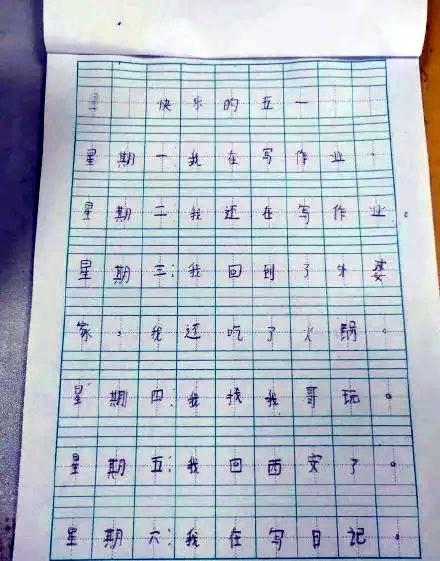 快乐的五一
星期一我在写作业。
星期二我还在写作业。
星期三:我回到了外婆
家,我还吃了火锅。
星期四:我找我哥玩。
星期五:我回西安了。
星期六:我在写日记。